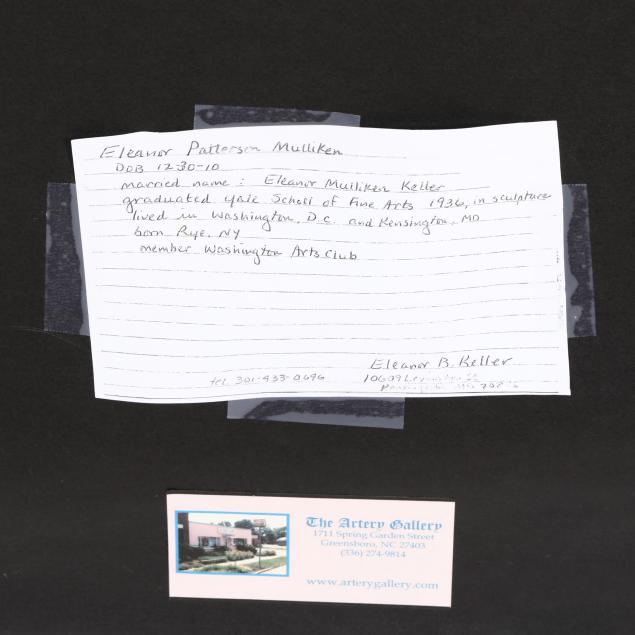 Eleanor Patterson Mulliken
DOB 12-30-10
married name: Eleanor Mulliken Keller
graduated Yale School of Fine Arts 1936, in sculpture
lived in Washington, D.C. and Kensington, MD
born Rye, NY
member Washington Arts Club
Eleanor B. Keller
tel. 301-933-0696
10609
The Artery Gallery
1711 Spring Garden Street
Greensboro, NC 27403
(336) 274-9814
www.arterygallery.com